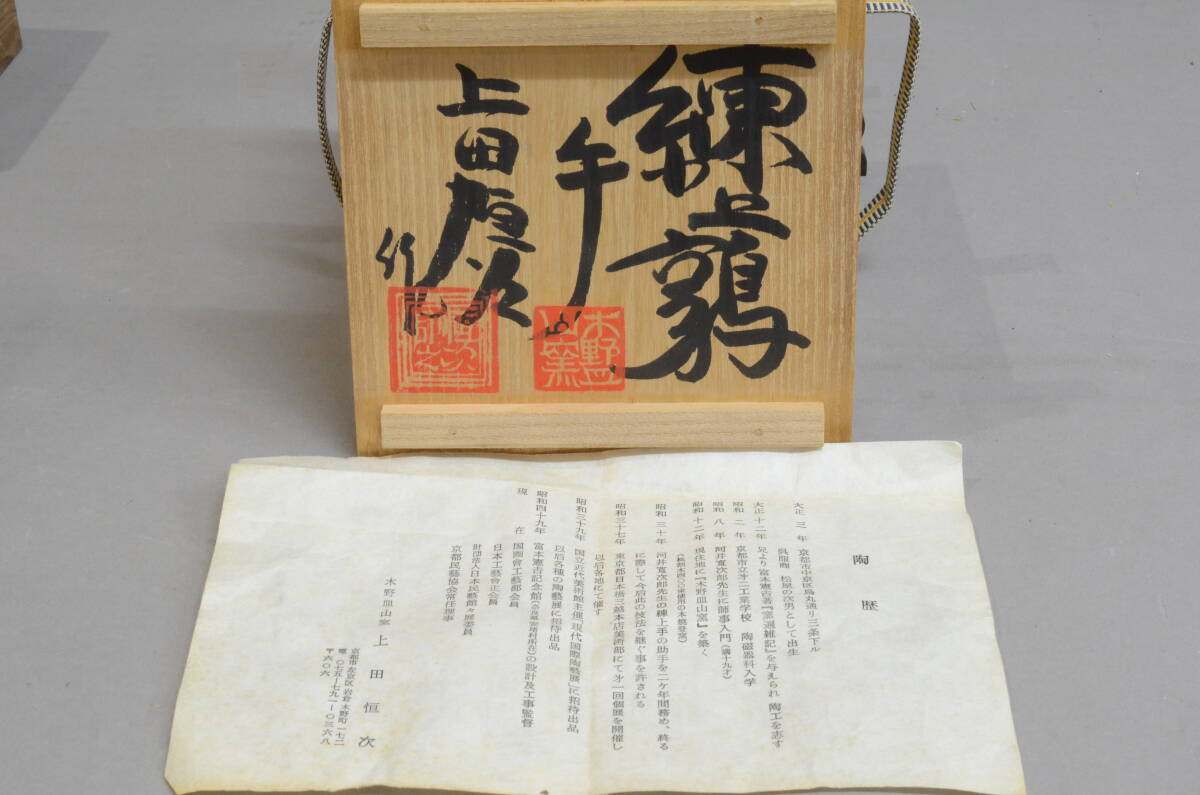 練上鶉
手
上田恒次
作
木野皿山窯
陶歴
大正 三 年 京都市中京区烏丸通り三条下ル
呉服商 松屋の次男として出生
大正十二年 兄より富本憲吉著『窯辺雑記』を与えられ 陶工を志す
昭和 二 年 京都市立オ二工業学校 陶磁器科入学
昭和 八 年 河井寛次郎先生に師事入門(満十九才)
昭和 十二年 現住地に『木野皿山窯』を築く
昭和 三十年 河井寛次郎先生の練上手の助手を二ケ年間務め、終る
に際して今后此の技法を継ぐ事を許される
昭和三十七年 東京都日本橋三越本店美術部にてオ一回個展を開催し
以后各地にて催す
昭和三十九年 国立近代美術館主催「現代国際陶藝展」に招待出品
以后各種の陶藝展に招待出品
昭和四十九年 富本憲吉記念館(奈良県安堵村所在)の設計及工事監督
現 在 国画會工藝部会員
日本工藝會正会員
財団法人日本民藝館々展委員
京都民藝協會常任理事
木野皿山窯 上田恒次
京都市左京区岩倉木野町一七二
電〇七五―七九一―〇三六八
〒六〇六